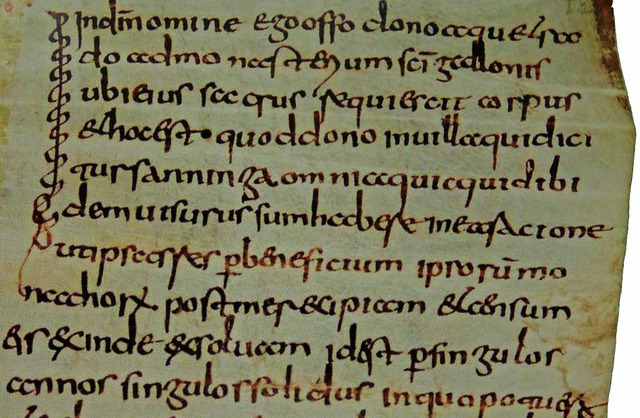 In dī nomine ego offo dono atque tra
do ad monasterium scī galloni
ubi eius sacrus requiescit corpus
et hoc est quod dono in villa qui dici
tur sanninga omnia quicquid ibi
dem visurus sum habere in ea racione
ut ipsas res ꝑ beneficium ipsorum mo
nachorꝝ post me recipiam et censum
exinde exsoluam id est ꝑ singulos
annos singulos solidus in quo